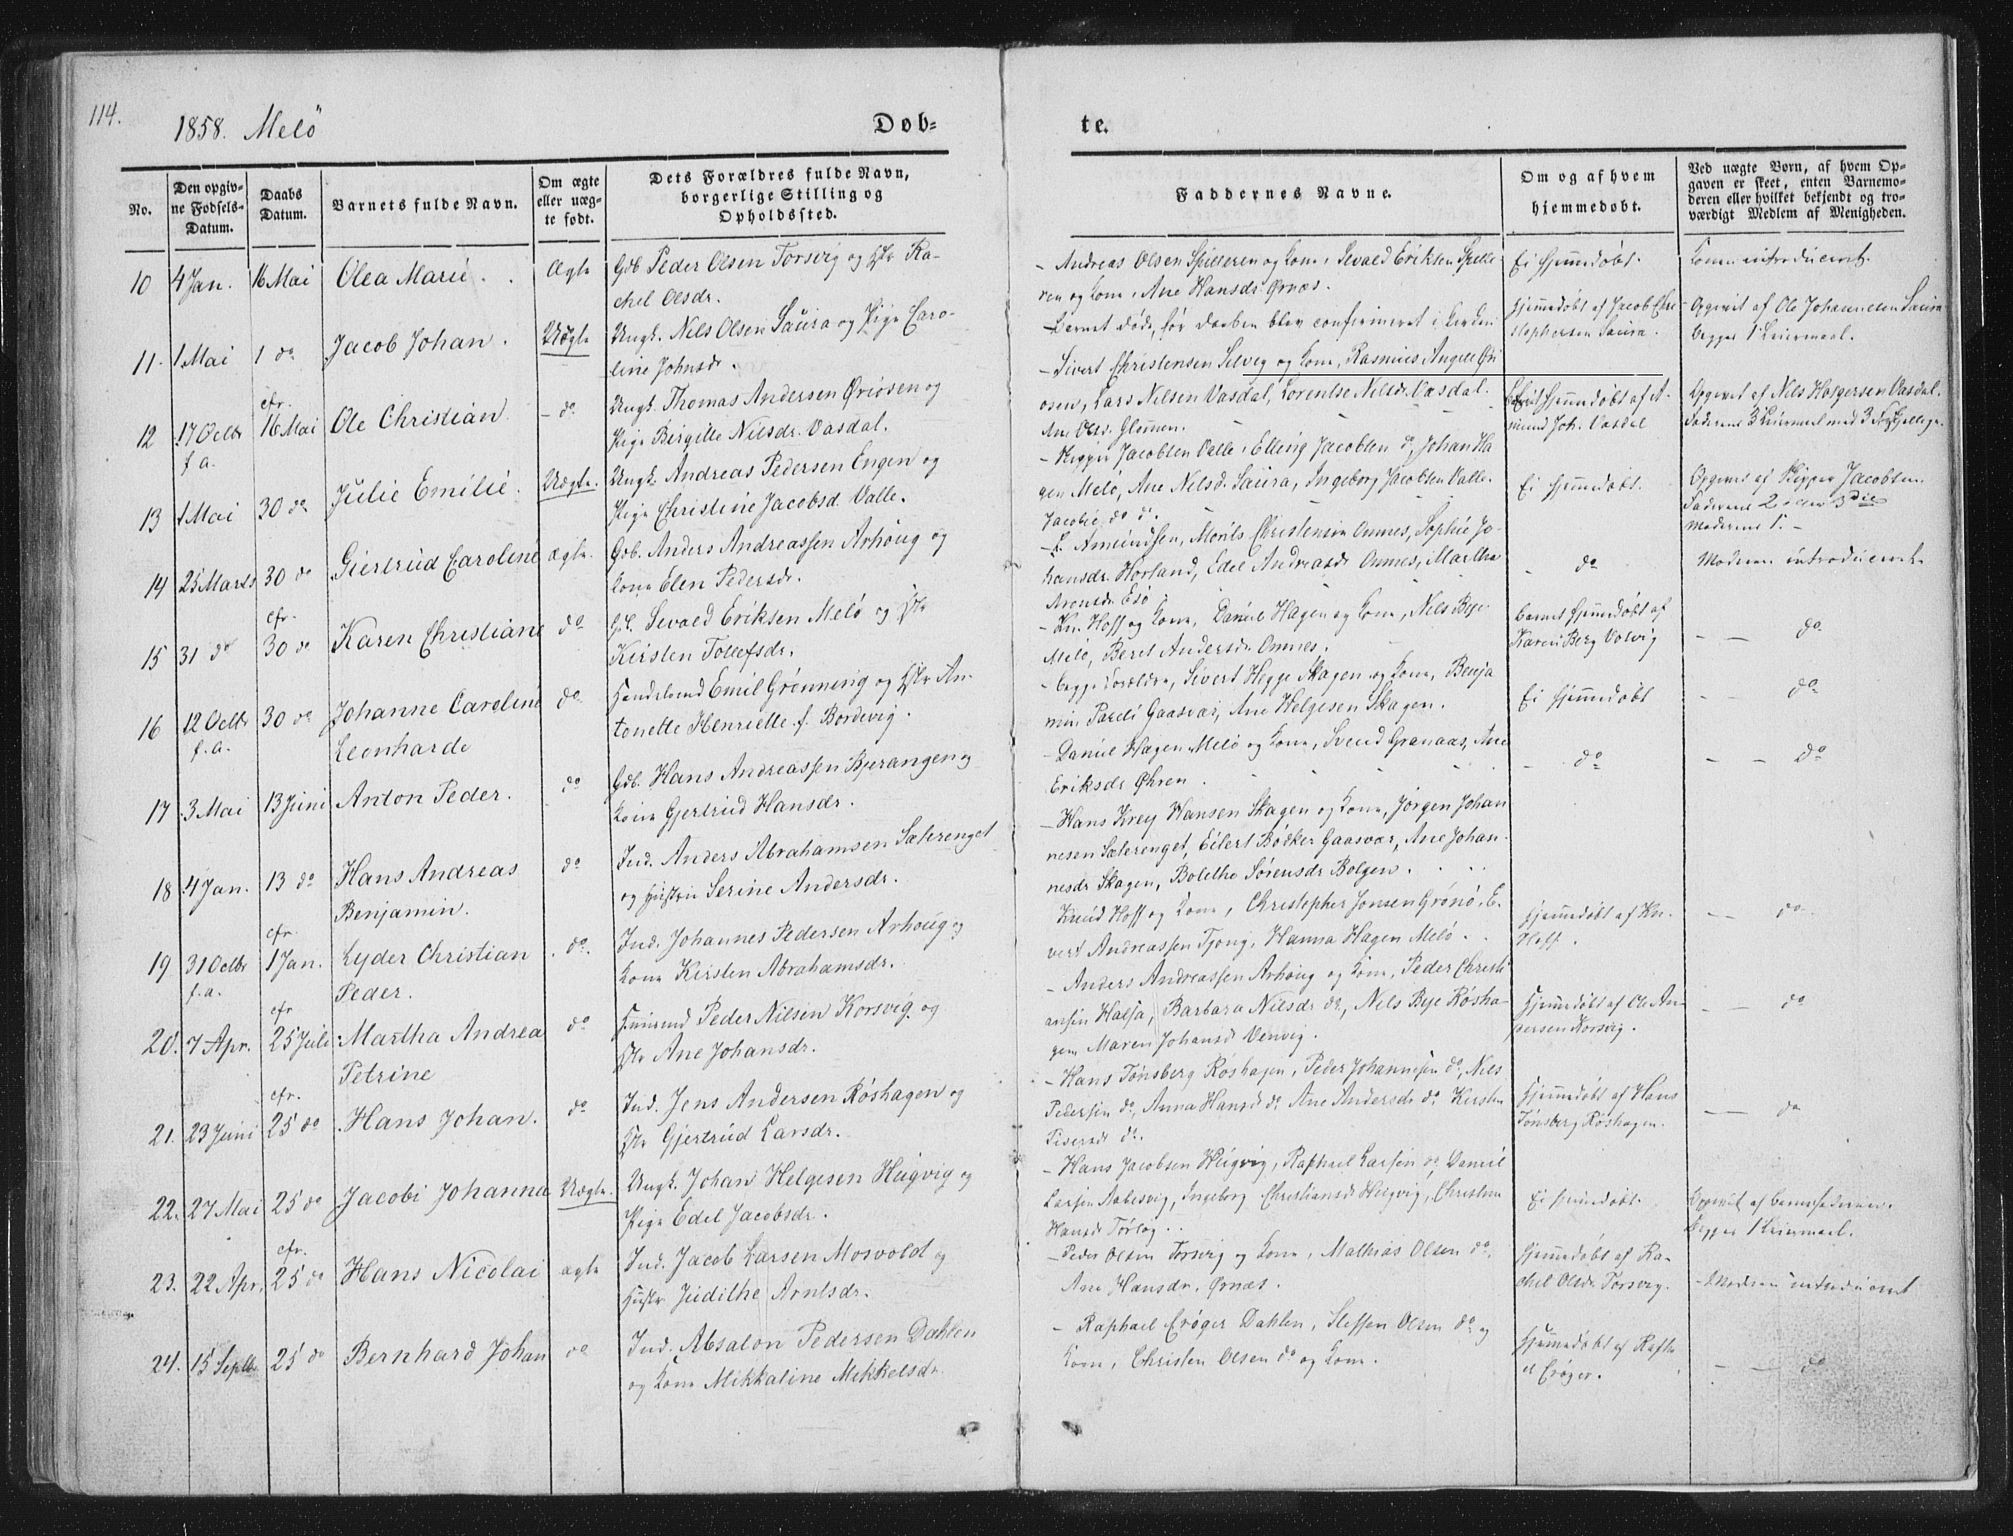 114.
1858. Melö
Døb-
No.
Den opgiv-
ne Fødsels-
Datum.
Daabs
Datum.
Barnets fulde Navn.
Om ægte
eller uæg-
te født.
Dets Forældres fulde Navn,
borgerlige Stilling og
Opholdssted.
10 4 Jan. 16 Mai Olea Marie. Ægte Gdb Peder Olsen Torsvig og Ra-
chel Olsdr.
11. 1 Mai 1 do Jacob Johan. Uægte Ungk. Nils Olsen Saura og Pige Caro-
line Johnsdr.
cfr.
12 17 Octbr 16 Mai Ole Christian. - do Ungk. Thomas Andersen Øriosen og
f. a. Pige Birgitte Nilsdr. Vasdal.
13 1 Mai 30 do Julie Emilie. Uægte. Ungk. Andreas Pedersen Engen og
Pige Christine Jacobsd. Valle.
14 25 Marts 30 do Giertrud Caroline ægte. Gdb. Anders Andreassen Arhoug og
Kone Elen Pedersdr.
cfr.
15 31 do 30 do Karen Christiane do Sevald Eriksen Melö og
Kirsten Tollefsdr.
16 12 Octbr 30 do Johanne Caroline do Handelsmd Emil Grønning og An-
f. a. Leonharde tonette Henriette f. Bordevig.
17 3 Mai 13 Juni Anton Peder. do Gdb. Hans Andreassen Bjerangen og
Kone Gjertrud Hansdr.
18 4 Jan. 13 do Hans Andreas do Ind. Anders Abrahamsen Sæterenget
Benjamin. og Hustru Serine Andersdr.
cfr.
19 31 Octbr 1 Jan. Lyder Christian do. Ind. Johannes Pedersen Arhoug og
f. a. Peder. Kone Kirsten Abrahamsdr.
cfr
20. 7 Apr. 25 Juli Martha Andrea do Peder Nilsen Korsvig og
Petrine Ane Johansdr.
cfr.
21. 23 Juni 25 do Hans Johan. do Ind. Jens Andersen Röshagen og
Gjertrud Larsdr.
22. 27 Mai 25 do Jacobi Johanna Uægte. Ungk. Johan Helgesen Hugvig og
Pige Edel Jacobsdr.
cfr.
23. 22 Apr. 25 do Hans Nicolai ægte Ind. Jacob Larsen Mosvoldt og
Hustr Judithe Arntsdr.
24. 15 Septbr 25 do Bernhard Johan do Ind. Absalon Pedersen Dahlen
og Kone Mikkaline Mikkelsdr.
te.
Faddernes Navne.
Om og af hvem
hjemmedøbt.
Ved uægte Børn, af hvem Op-
gaven er skeet, enten Barnemo-
deren eller hvilket bekjendt og tro-
værdigt Medlem af Menigheden.
- Andreas Olsen Spilderen og Kone, Sevald Eriksen Spilde- Ei hjemmdøbt. Konen introduceret.
ren og Kone, Ane Hansdr Ørnæs.
- Barnet döde, før Daaben blev confirmeret i Kirken Hjemmdøbt af Jacob Chri- Opgivet af Ole Johannesen Saura
stophersen Saura. begges 1 Leiermaal.
- Sivert Christensen Selvig og Kone, Rasmus Angell Øri
osen, Lars Nilsen Vasdal, Lorentse Nilsdr. Vasdal. hjemmdøbt af A- Opgivet af Nils Holgersen Vasdal.
Ane Olsd. Glomen. mund Joh. Vasdal Faderens 3 Leiermaal med 3
- Jacobsen Valle, Elling Jacobsen do, Johan Ha
gen Melö, Ane Nilsd. Saura, Ingeborg Jacobsen Valle. Ei hjemmdøbt. Opgivet af Jacobsen
Jacobie do do. Faderens 2 den 3die
Moderens 1. -
- Amundsen, Morits Christensen Onnes, Sophie Jo-
hansdr. Horland, Edel Andreasdr Onnes, Martha - do Moderen introduceret
Aronsdr. Esö.
- Kn. Hoff og Kone, Daniel Hagen og Kone, Nils Bye Barnet hjemmdøbt af
Melö, Beret Andersdr. Onnes. Karen Berg Volvig - - do
- Begge Forældre, Sivert Hegge Skagen og Kone, Benja Ei hjemmdøbt - - do
min Gaasvær, Ane Helgesen Skagen.
- Daniel Hagen Melö og Kone, Svend Granaas, Ane - do - - do
Eriksdr Øhren.
- Hans Krey Hansen Skagen og Kone, Jørgen Johan
nesen Sæterenget, Eilert Bödker Gaasvær, Ane Johan-
nesdr Skagen, Bolethe Sørensdr Bolgen.
Knud Hoff og Kone, Christopher Jonsen Grönö, E- Hjemmdøbt af Kn. - - do
vert Andreassen Tjong, Hanna Hagen Melö. Hoff.
- Anders Andreassen Arhoug og Kone, Peder Christi
ansen Halsa, Barbara Nilsdr do, Nils Bye Rösha- Hjemmdøbt af Ole An- - - do
gen Maren Johansd Venvig. dersen Korsvig.
- Hans Tönsberg Röshagen, Peder Johannesen do, Nils
Pedersen do, Anna Hansd do Ane Andersdr do Kirsten Hjemmdøbt af Hans - - do
do. Tönsberg Röshagen.
- Hans Jacobsen Hugvig, Raphael Larsen do, Daniel
Larsen, Ingeborg Christiansdr Hugvig, Christine Ei hjemmdøbt. Opgivet af Barnefaderen.
Hansdr. Begges 1 Leiermaal.
- Peder Olsen Torsvig og Kone, Mathias Olsen do. Hjemmdøbt af Ra-
Ane Hansdr. Ørnæs. chel Olsdr Torsvig. - Moderen introduceret
- Raphael Krøger Dahlen, Steffen Olsen do og Hjemmdøbt af Rafa-
Kone, Christen Olsen do og Kone. el Krøger. - - do